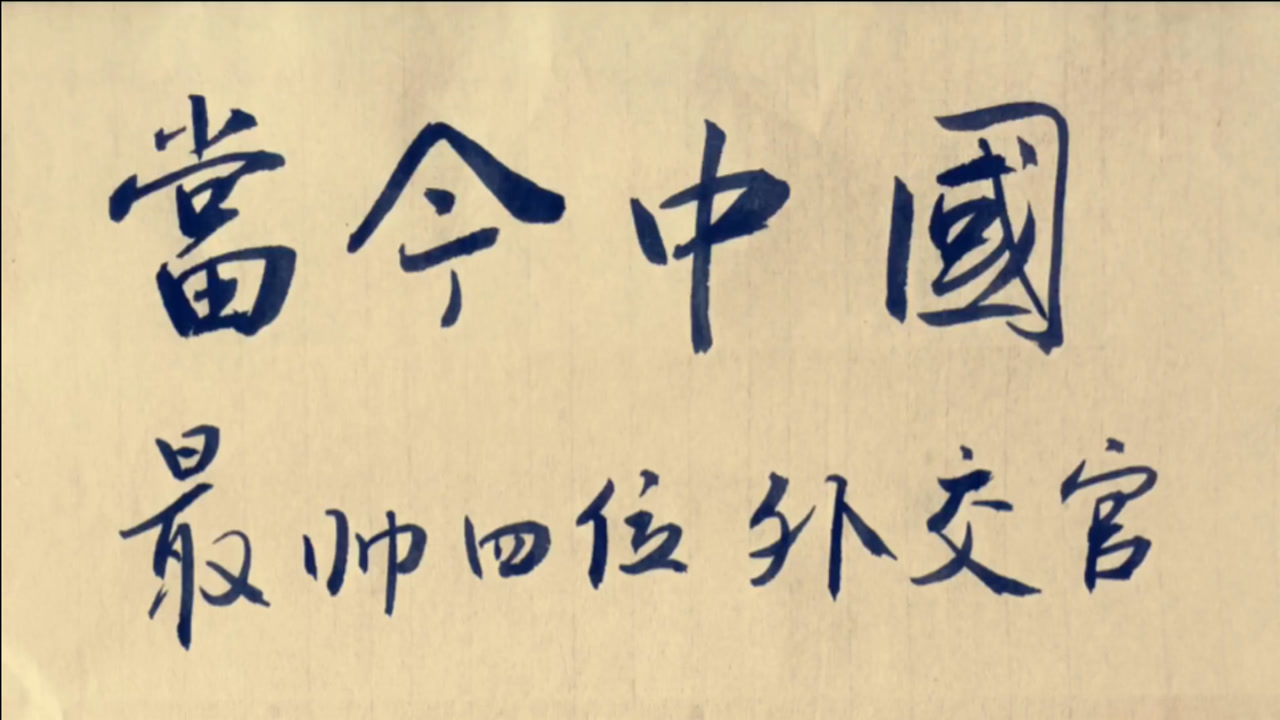 當今中國
最帅四位外交官